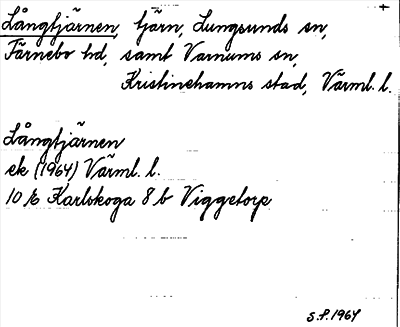 Långtjärnen, tjärn, Lungsunds sn,
Färnebo hd, samt Varnums sn,
Kristinehamns stad, Värml. l.
Långtjärnen
ek (1964) Värml. l.
10 E Karlskoga 8 b Viggetorp
S.P. 1964